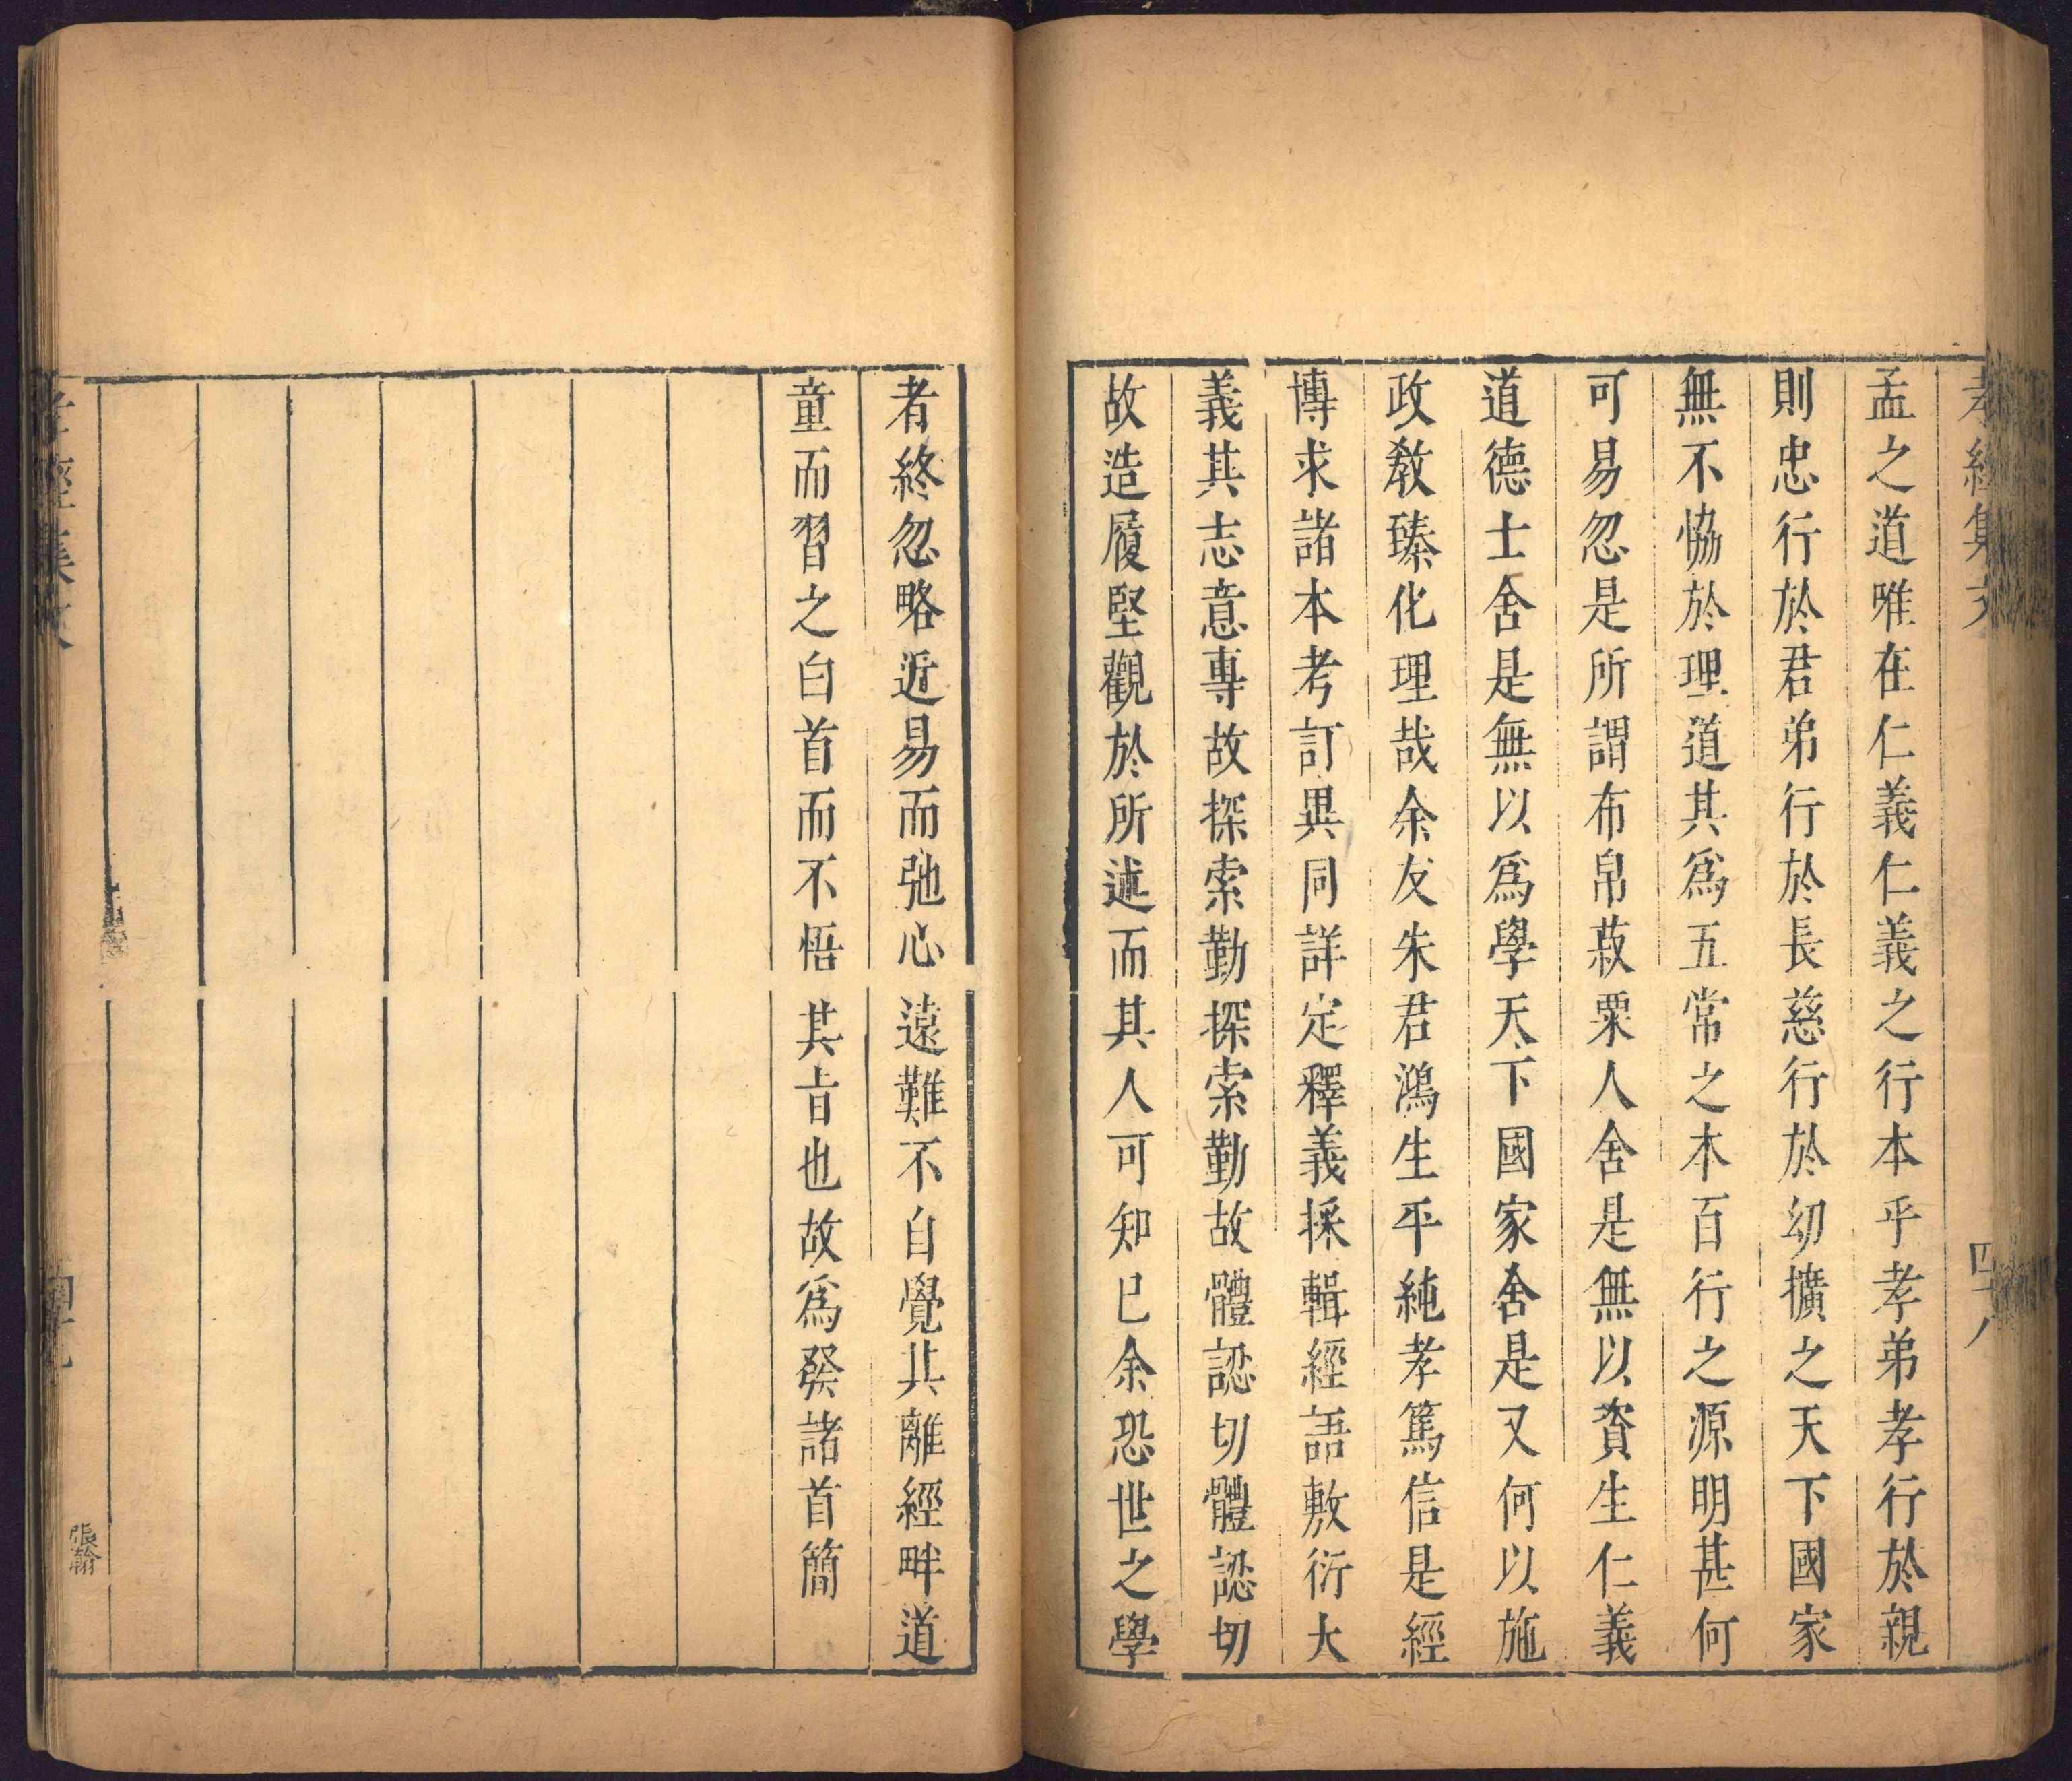 孝經集文
四十八
孟之道唯在仁義仁義之行本乎孝弟孝行於親
則忠行於君弟行於長慈行於幼擴之天下國家
無不恊於理道其爲五常之本百行之源明甚何
可易忽是所謂布帛菽粟人舍是無以資生仁義
道德士舍是無以爲學天下國家舍是又何以施
政教臻化理哉余友朱君鴻生平純孝篤信是經
博求諸本考訂異同詳定釋義採輯經語敷衍大
義其志意專故探索勤探索勤故體認切體認切
故造履堅觀於所述而其人可知已余恐世之學
者終忽略近易而弛心遠難不自覺其離經畔道
童而習之白首而不悟其旨也故爲發諸首簡
孝經集文
張翰